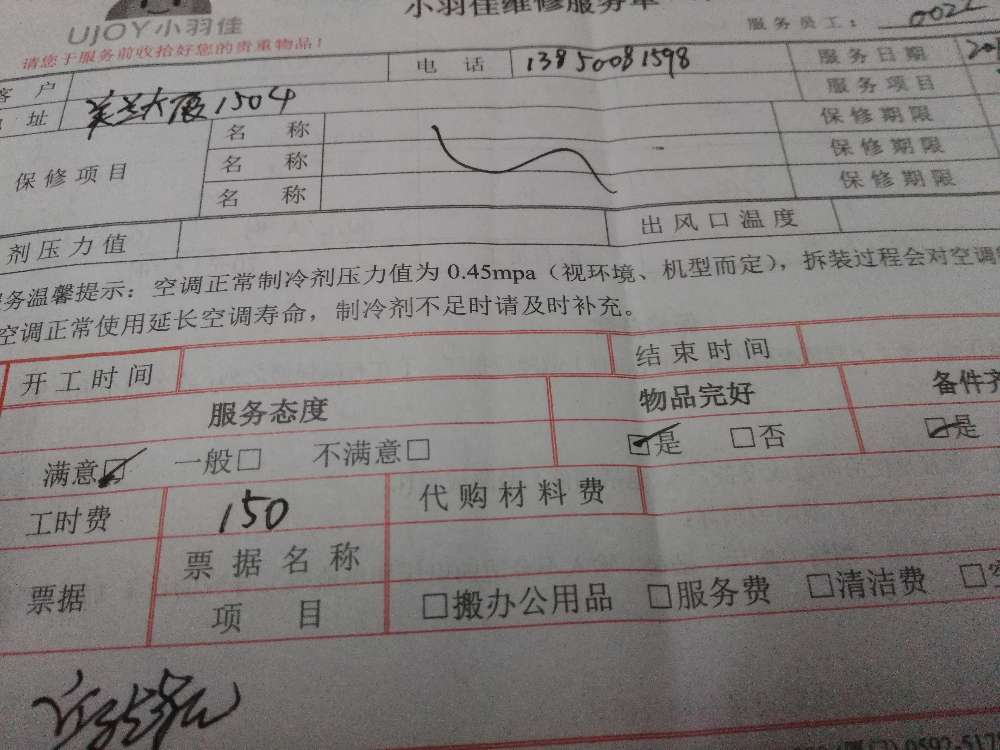 UJOY小羽佳
小羽佳维修服务单
请您于服务前收拾好您的贵重物品！
服务员工：
客 户
电 话 13850081598 服务日期
址 大厦1504 服务项目
保修项目
名 称 保修期限
名 称 保修期限
名 称 保修期限
剂压力值 出风口温度
服务温馨提示：空调正常制冷剂压力值为0.45mpa（视环境、机型而定），拆装过程会对空调
空调正常使用延长空调寿命，制冷剂不足时请及时补充。
开工时间 结束时间
服务态度 物品完好 备件齐
满意☑ 一般□ 不满意□ ☑是 □否 ☑是
工时费 150 代购材料费
票据
票据名称
项 目 □搬办公用品 □服务费 □清洁费